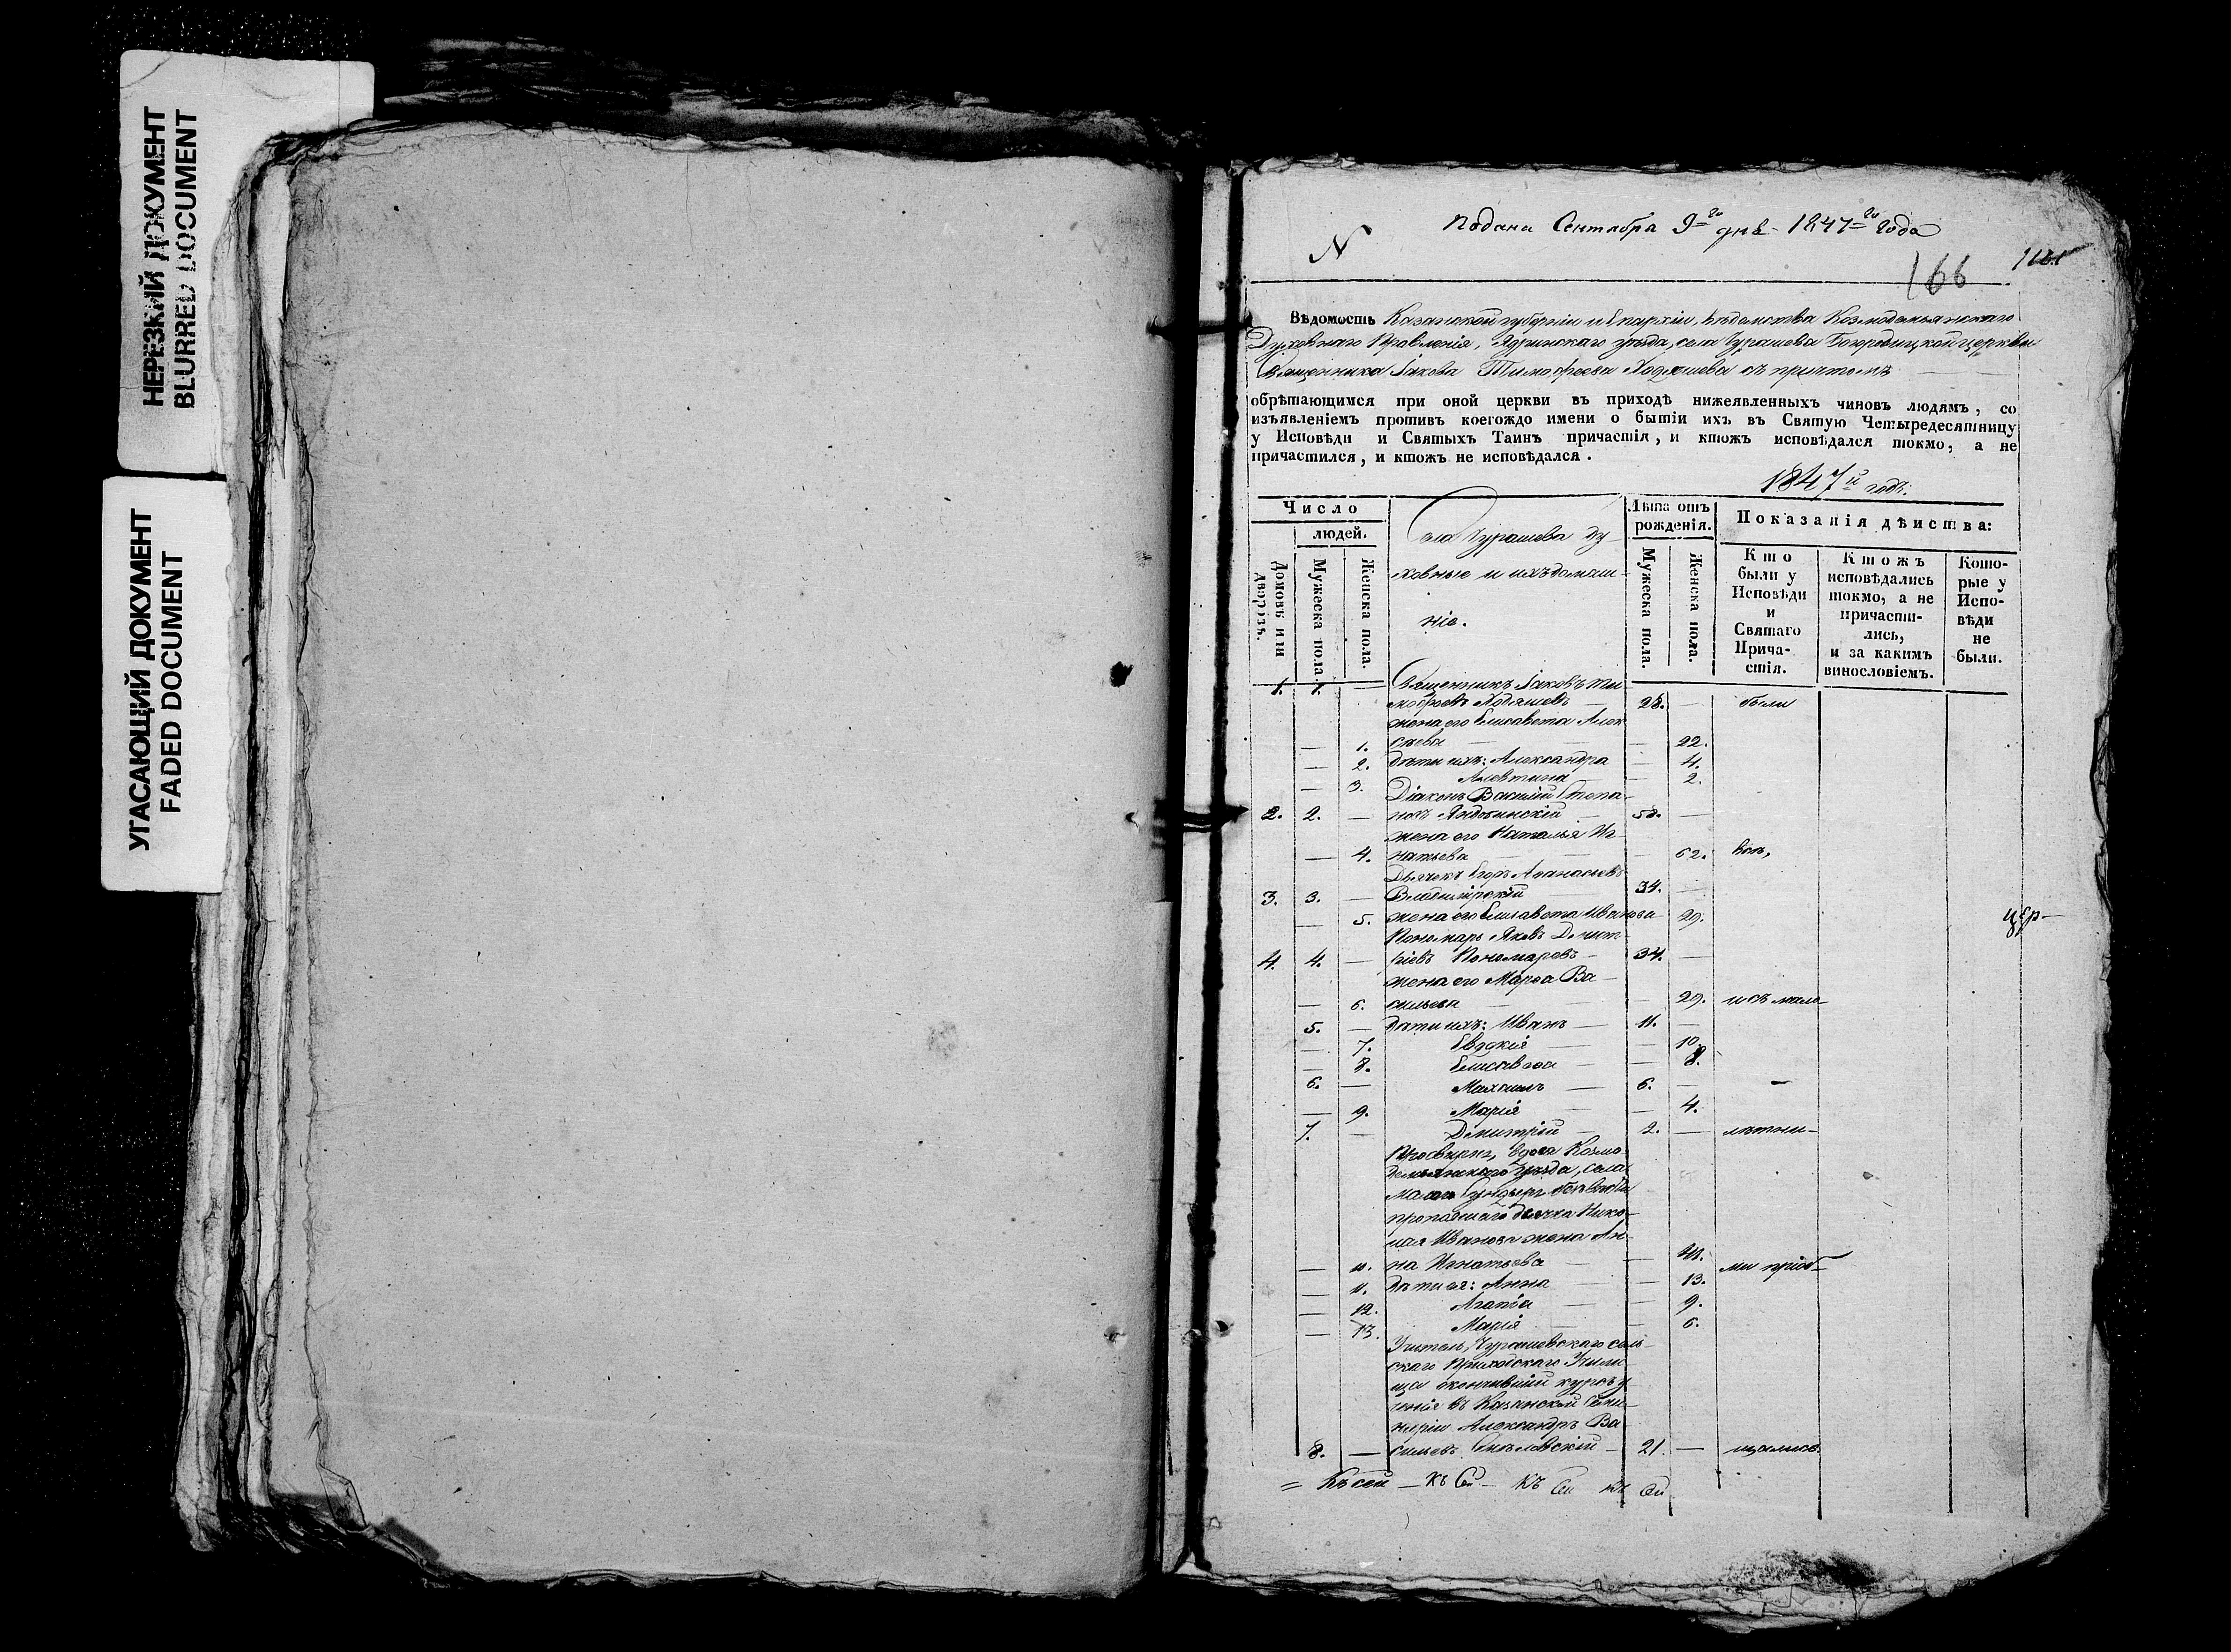 НЕРЕЗКИЙ ДОКУМЕНТ
BLURRED DOCUMENT
УГАСАЮЩИЙ ДОКУМЕНТ
FADED DOCUMENT
Подана Сентября 9го дня 1847го года
N
166
Вѣдомость Казанской губерніи и Епархіи, вѣдомства Козмодемьянскаго
Духовнаго Правленія, Ядринскаго уѣзда, села Чурашева Богородицкой церкви
Священника Іакова Тимофеева Ходяшева съ причтомъ
обрѣтающимся при оной церкви въ приходѣ нижеявленныхъ чиновъ людямъ, со
изъявленіемъ противъ коегождо имени о бытіи ихъ въ Святую Четыредесятницу
у Исповѣди и Святыхъ Таинъ причастія, и ктожъ исповѣдался токмо, а не
причастился, и ктожъ не исповѣдался.
1847й годъ.
Число
людей.
Домовъ или дворовъ.
Мужеска пола.
Женска пола.
Села Чурашева ду-
ховные и ихъ домаш-
ніе.
Лѣта отъ
рожденія.
Мужеска пола.
Женска пола.
Показанія дѣиства:
Кто
были у
Исповѣди
и
Святаго
Прича-
стія.
Ктожъ
исповѣдались
токмо, а не
причасти-
лись,
и за какимъ
винословіемъ.
Кото-
рые у
Испо-
вѣди
не
были.
1. 1. — Священникъ Іаковъ Ти
мофеевъ Ходяшевъ — 28. — были
жена его Елисавета Алек
— 1. сѣева — 22.
— 2. дѣти ихъ: Александра — 4.
— 3. Алевтина — 2.
Діаконъ Василій Степа-
2. 2. — новъ Яндобинскій — 58. —
жена его Наталья Иг
— 4. натьева — 62.
Дьячекъ Егоръ Аѳанасьевъ
3. 3. — Владимірскій 34. —
— 5. жена его Елисавета Иванова 29.
цер-
Пономарь Яковъ Дмит-
4. 4. — ріевъ Пономаревъ — 34. —
жена его Марѳа Ва
— 6. сильева — 29. и съ мало-
5. — дѣти ихъ: Иванъ — 11. —
— 7. Евдокія — 10.
— 8. Елисавета — 8.
6. — Михаилъ — 6. —
— 9. Марія — 4.
7. — Димитрій — 2. — лѣтни-
Просвирня, вдова Козмо
демьянскаго уѣзда, села
пропавшаго дьячка Нико-
лая Иванова жена Ан-
— на Игнатьева — ми пріоб-
— 11. дѣти ея: Анна — 13.
— 12. Агапія — 9.
— 13. Марія — 6.
Учитель, Чурашевскаго сель-
скаго Приходскаго Учили
ща окончившій курсъ у
ченія въ Казанской Семи-
наріи Александръ Ва
8. — сильевъ — 21. — щались
= Къ сей — Къ Сей — Къ Сей Къ Сей